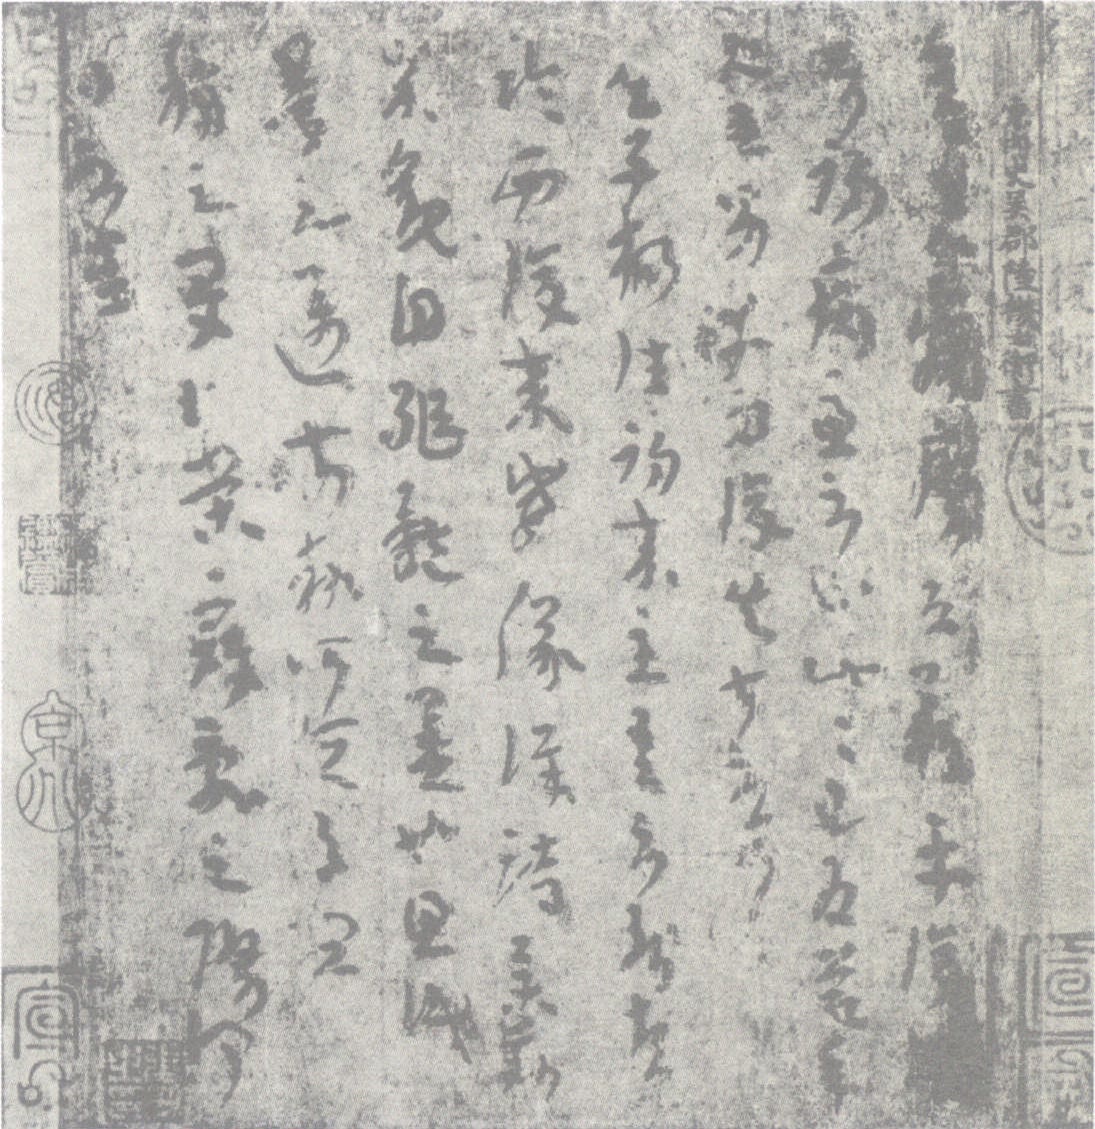 內史吳郡陸機士衡書
彥先羸瘵恐難平復
往屬初病慮不止此此已為慶承
使唯男幸為復失前憂耳
吳子楊往初來主吾不能盡
臨西復來威儀詳跱舉動
成觀自軀體之美也思識
量之邁前執所恒有宜
稱之夏伯榮寇亂之際聞
問不悉